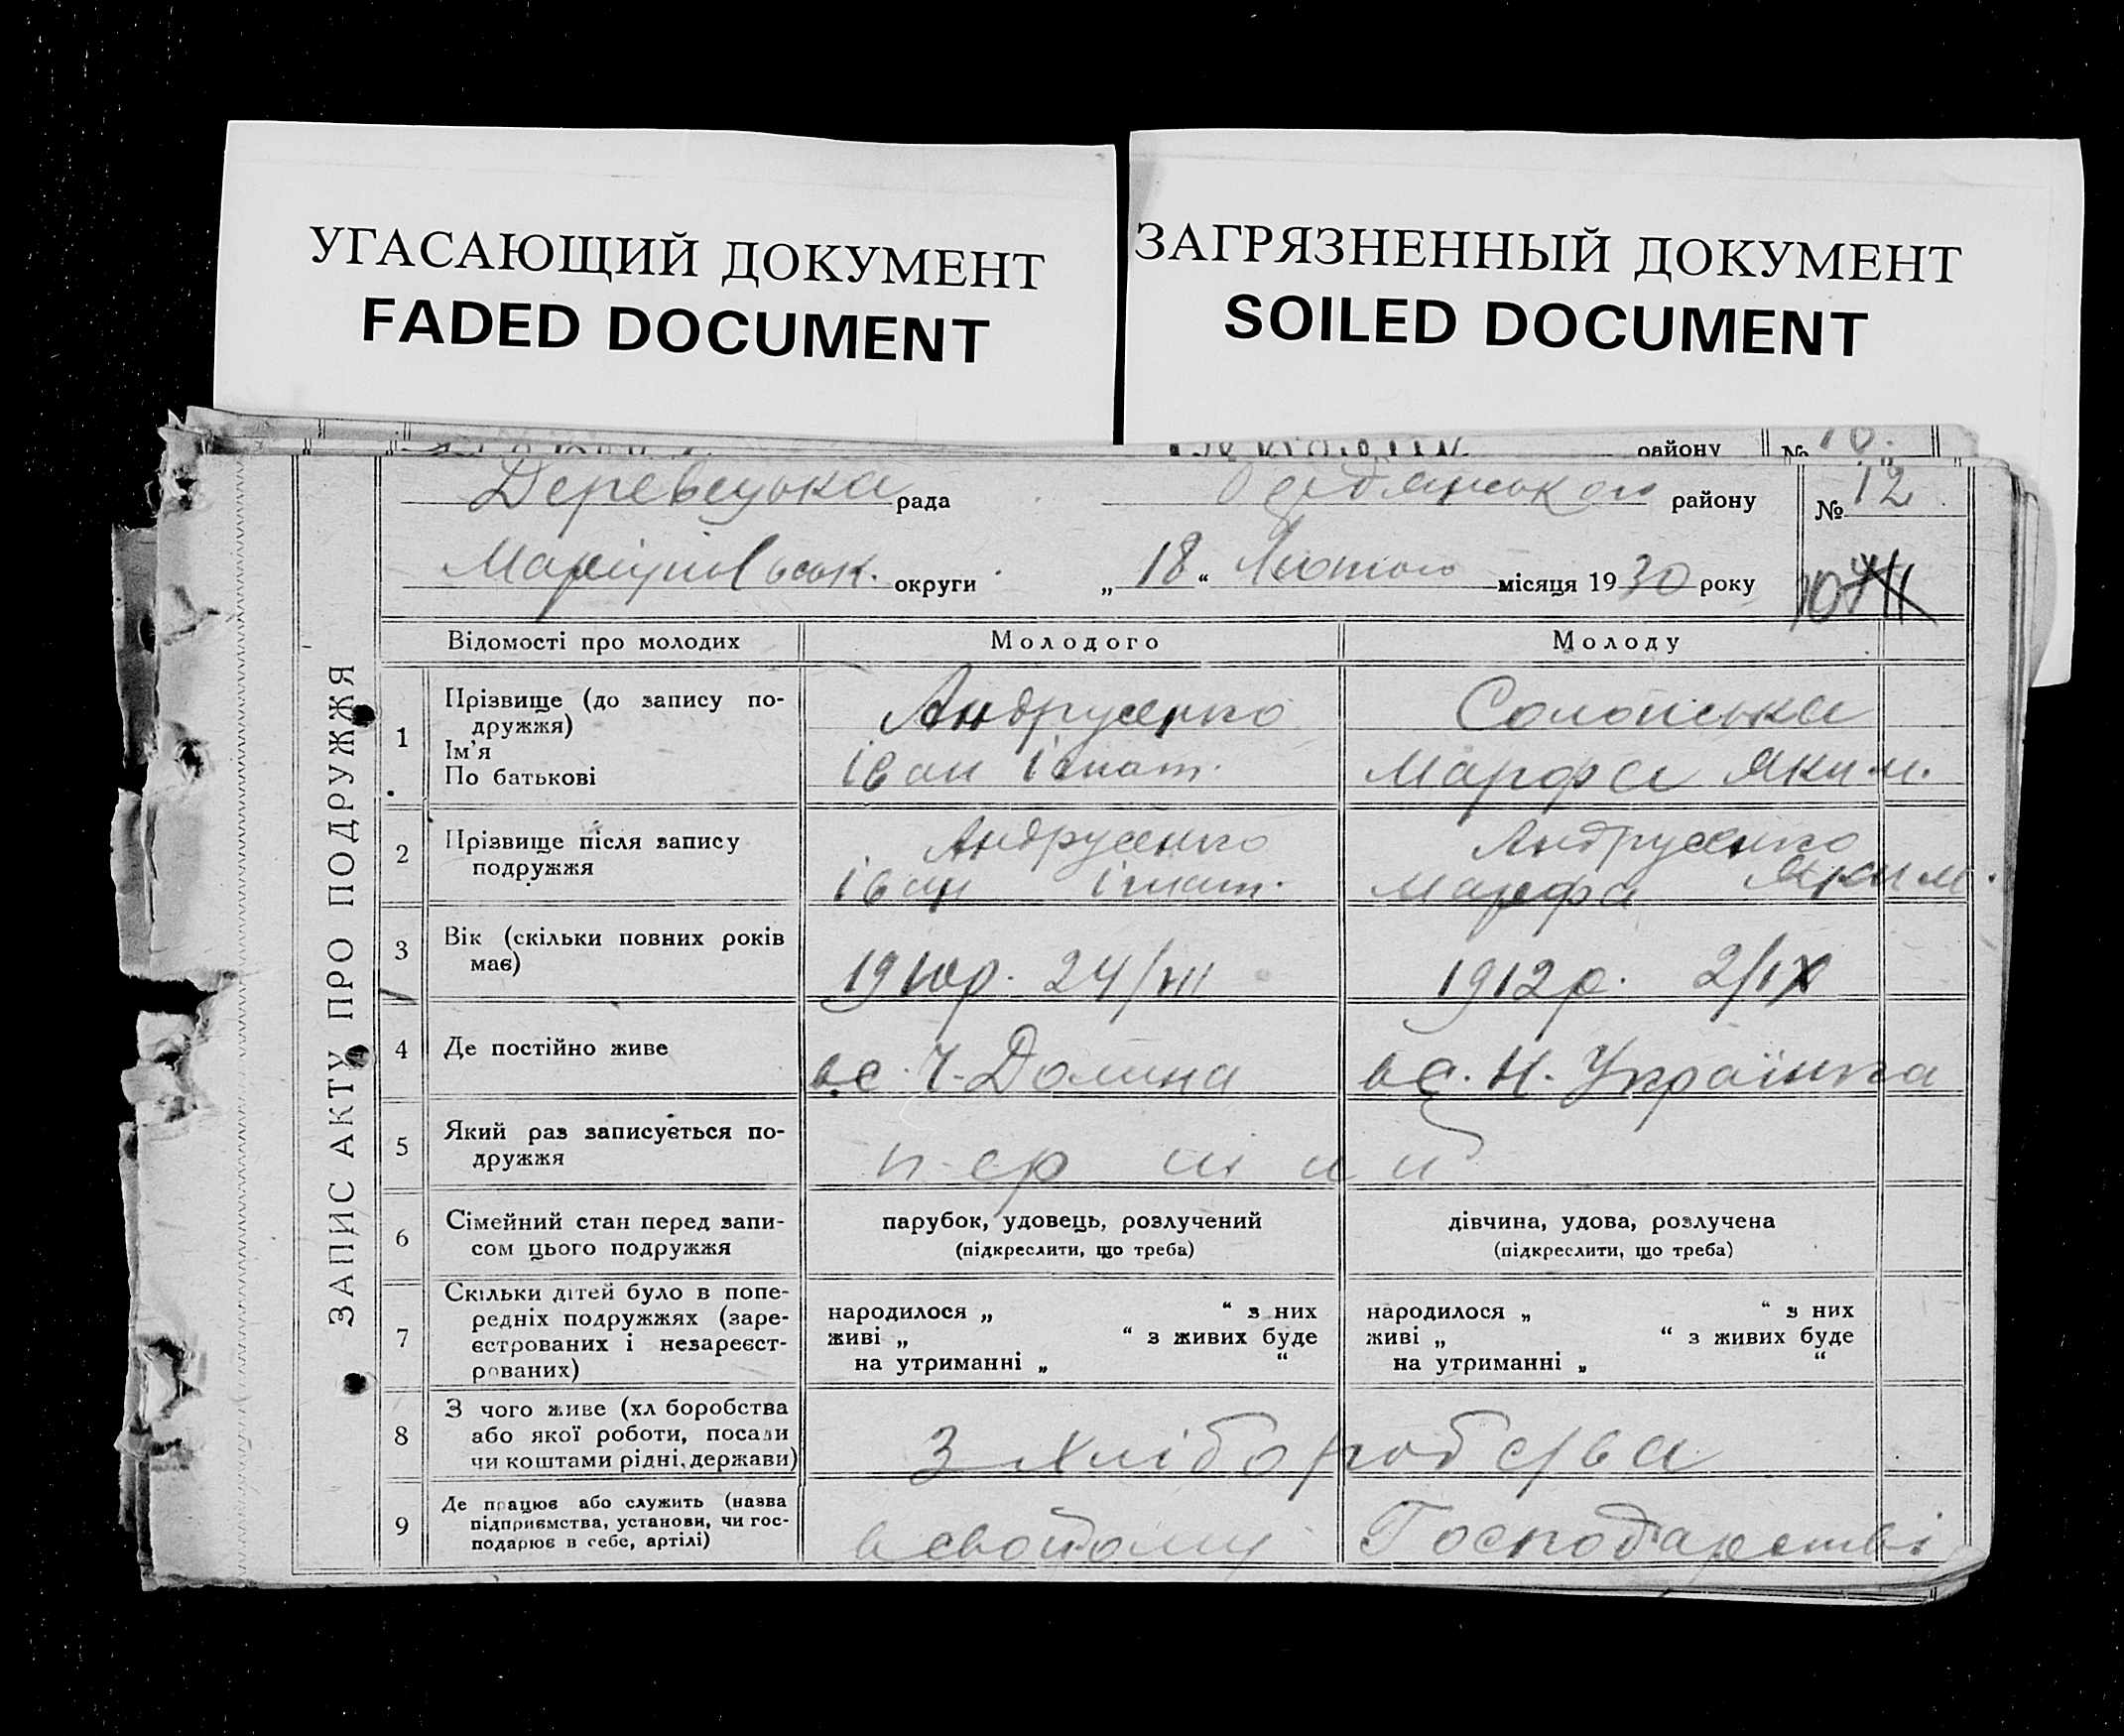 УГАСАЮЩИЙ ДОКУМЕНТ
FADED DOCUMENT
ЗАГРЯЗНЕННЫЙ ДОКУМЕНТ
SOILED DOCUMENT
району №
ЗАПИС АКТУ ПРО ПОДРУЖЖЯ
Деревецька рада району № 12
округи „ 18 “ Лютого місяця 1930 року
Відомості про молодих Молодого Молоду
1 Прізвище (до запису по-
дружжя)
Ім'я
По батькові
Андрусенко
Іван Ігнат.
Солонська
Марфа Яким.
2 Прізвище після запису
подружжя
Андрусенко
Іван Ігнат.
Андрусенко
Марфа Яким.
3 Вік (скільки повних років
має)
24/VII
1912р. 2/IX
4 Де постійно живе
в с. Ч. Долина
в с. Н. Українка
5 Який раз записується по-
дружжя
перший
6 Сімейний стан перед запи-
сом цього подружжя
парубок, удовець, розлучений
(підкреслити, що треба)
дівчина, удова, розлучена
(підкреслити, що треба)
7 Скільки дітей було в попе-
редніх подружжях (заре-
єстрованих і незареєст-
рованих)
народилося „ “ з них
живі „ “ з живих буде
на утриманні „ “
народилося „ “ з них
живі „ “ з живих буде
на утриманні „ “
8 З чого живе (хліборобства
або якої роботи, посади
чи коштами рідні, держави)
З хліборобства
9 Де працює або служить (назва
підприємства, установи, чи гос-
подарює в себе, артілі)
в свойому Господарстві